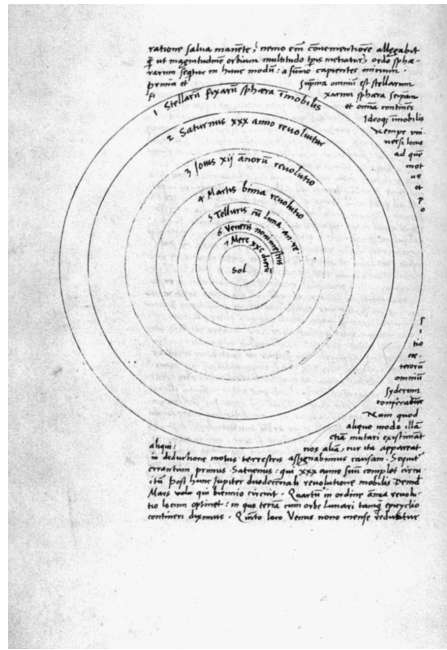 ratione salua manente, nemo em̄ conuenientiorē allegabit
q̄ ut magnitudinē orbium multitudo tp̄is metiatur, ordo sphæ-
rarum seqtur in hunc modū: a sūmo capientes initium.
prima et Suprema omniū est stellarum
fixarum sphæra seipsam
et omīa continēs
Ideoq; īmobilis
Nempe uni-
uersi locus
ad quē
mot
us
et
po
1 Stellarū fixarū sphæra īmobilis
2 Saturnus xxx anno reuoluitur
3 Iouis xij annorū reuolutio
4 Martis bima reuolutio
5 Telluris cū Luna an. re.
6 Veneris nonimestris
7 Merc xxc dierū
Sol
tio
cæ
terorū
omniū
syderum
conferatur
Nam quod
aliquo modo illā
etiā mutari existimāt
aliqui: nos aliā, cur ita appareat
in deductione motus terrestris assignabimus causam. Sequit
errantium primus Saturnus: qui xxx anno suū complet circu
itū Post hunc Iupiter duodecennali reuolutione mobilis Deinde
Mars uolo qui biennio circuit. Quartū in ordine annua reuolu-
tio locum optinet: in quo terrā cum orbe Lunari tamq; epicyclio
contineri diximus. Quīto loco Venus nono mense reducitur